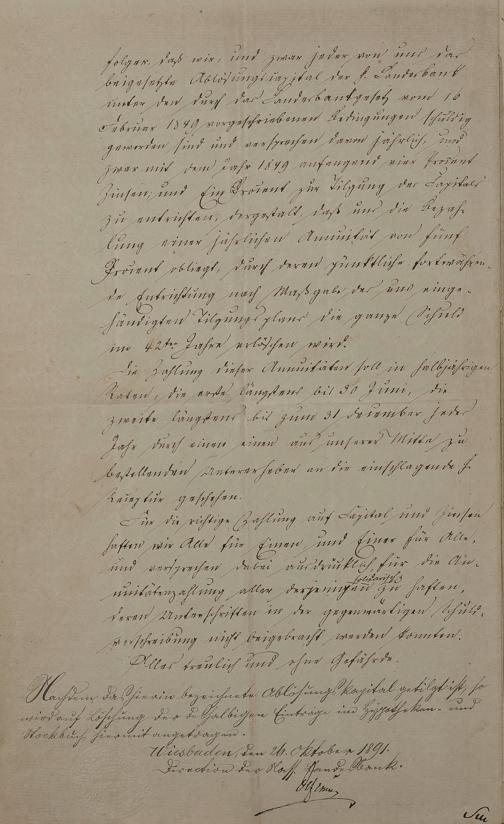 folger, daß wir, und zwar jeder von uns das
beigesetzte Ablösungscapital der H. Landesbank
unter den durch das Landesbankgesetz vom 16
Februar 1849 vorgeschriebenen Bedingungen schuldig
geworden sind und versprechen davon jährlich, und
zwar mit dem Jahr 1849 anfangend vier Procent
Zinsen, und Ein Procent zur Tilgung des Capitals
zu entrichten, dergestalt, daß uns die Bezah-
lung einer jährlichen Annuität von fünf
Procent obliegt, durch deren pünktliche fortwähren-
de Entrichtung nach Maßgabe des uns einge-
händigten Tilgungsplans die ganze Schuld
im 42ten Jahre erlöschen wird.
Die Zahlung dieser Annuitäten soll in halbjährigen
Raten, die erste längstens bis 30 Juni, die
zweite längstens bis zum 31 December jedes
Jahr durch einen einen aus unserer Mitte zu
bestellenden Untererheber an die einschlagende H.
Receptur geschehen.
Für die richtige Zahlung auf Capital und Zinsen
haften wir Alle für Einen und Einer für Alle,
und versprechen dabei ausdrücklich, für die An-
nuitätenzahlung aller derjenigen solidarisch zu haften,
deren Unterschriften in der gegenwärtigen Schuld-
verschreibung nicht beigebracht werden konnten.
Alles treulich und ohne Gefährde.
Nachdem das hierin bezeichnete Ablösungskapital getilgt ist, so
wird auf Löschung der desfalsigen Einträge im Hypotheken- und
Stockbuch hiermit angetragen.
Wiesbaden, den 26. Oktober 1891.
Direction der Nass. Landesbank.